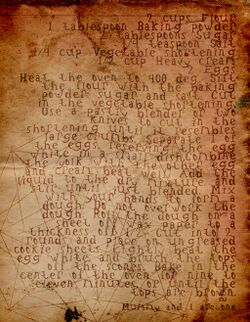 2 cups Flour
1 tablespoon Baking powder
2 tablespoons Sugar
1/4 teaspoon Salt
1/4 cup Vegetable shortening
1/2 cup Heavy cream
Eggs
Heat the oven to 400 deg. Sift
the flour with the baking
powder, sugar and salt. Cut
in the vegetable shortening.
Use a pastry blender or two
knives to cut in the
shortening until it resembles
large crumbs. Separate one of
the eggs, reserving the egg
white in a small dish. Combine
the yolk with the other egg
and cream, beat well. Add the
liquid to the dry mixture and
stir until just blended.
with your hands to form a
dough. Do not overwork the
dough. Roll the dough on a
sheet of wax paper to a
thickness of Cut into
rounds and place on ungreased
cookie sheets. Lightly beat the
egg white and brush the tops
of the scones. Bake in the
center of the oven for nine to
eleven minutes or until the
tops are brown.
Mummy and I are one